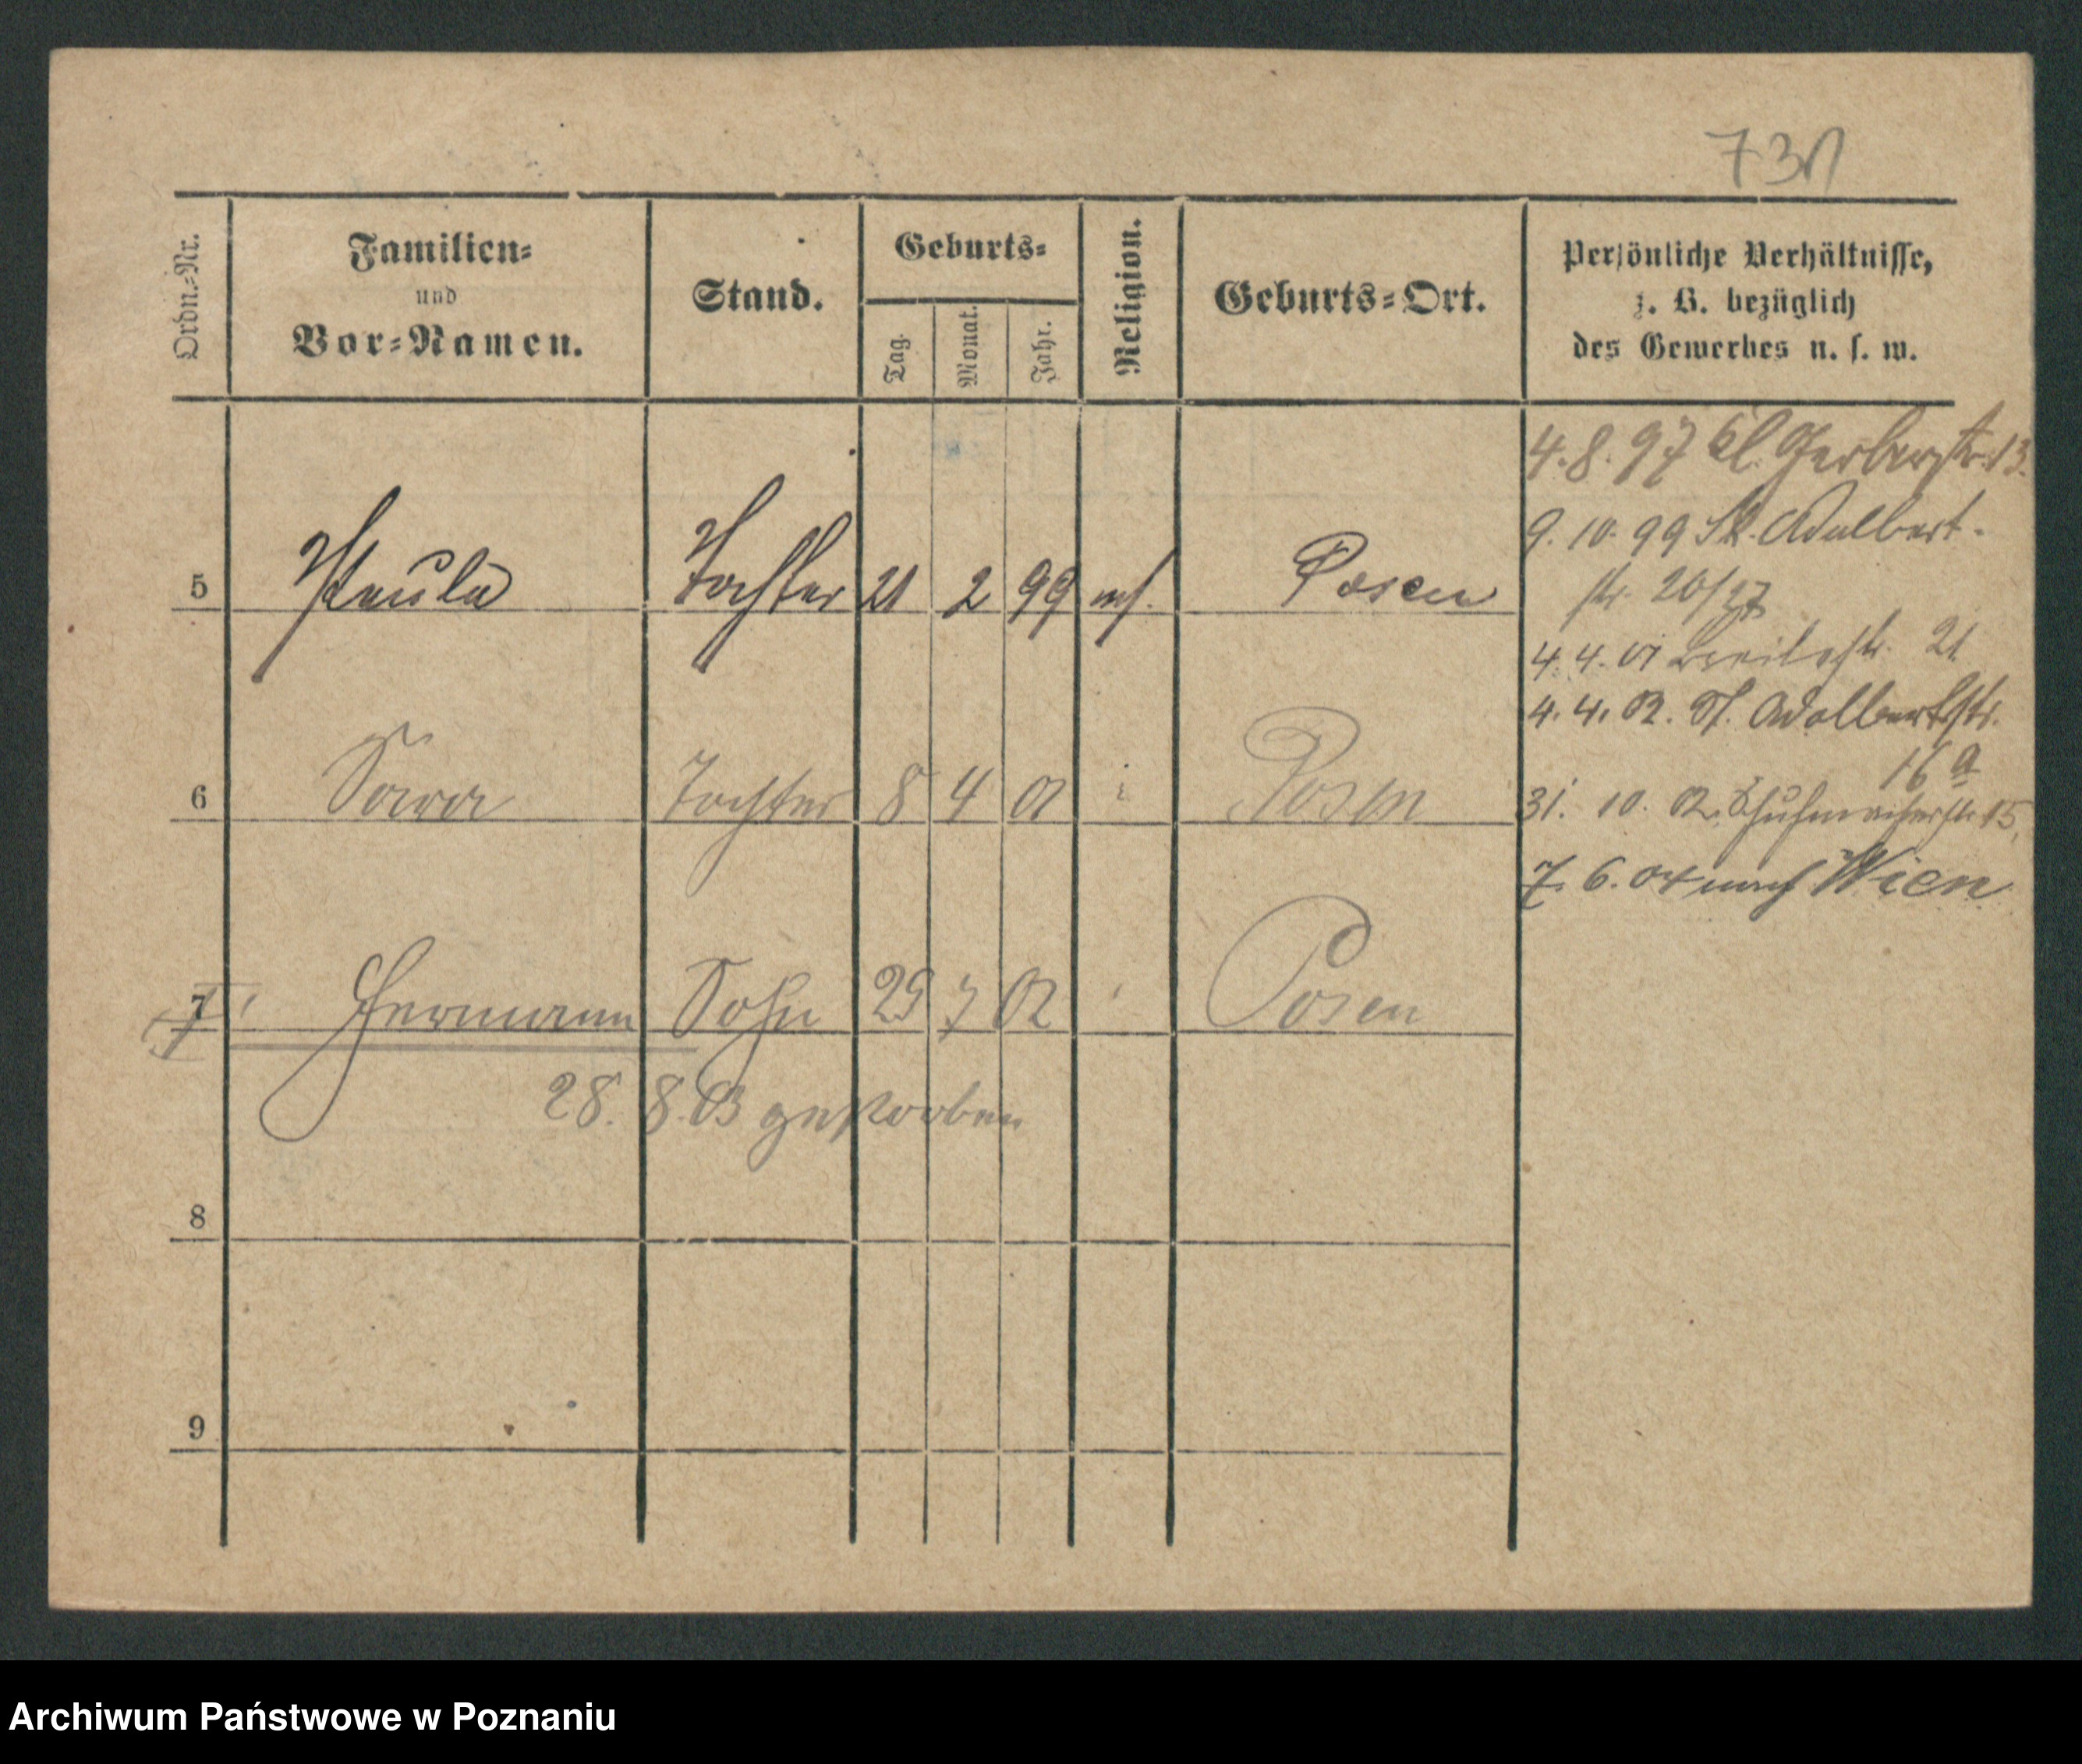 73
Ordn.-Nr.
Familien-
und
Vor-Namen.
Stand.
Geburts-
Tag.
Monat.
Jahr.
Religion.
Geburts-Ort.
Persönliche Verhältnisse,
z. B. bezüglich
des Gewerbes u. s. w.
5 Paula Tochter 21 2 99 Posen
6 Sara Tochter 8 4 01 i Posen
7 Hermann Sohn 29 7 02 Posen
28. 8. 03 gestorben
8
9
4. 8. 97 kl. Gerberstr. 13.
9. 10. 99 St. Adalbert-
str. 26/27
4. 4. 01 Breitestr. 21
4. 4. 02. St. Adalbertstr.
16 a
31. 10. 02. Schuhmacherstr. 15,
7. 6. 04 nach Wien
Archiwum Państwowe w Poznaniu